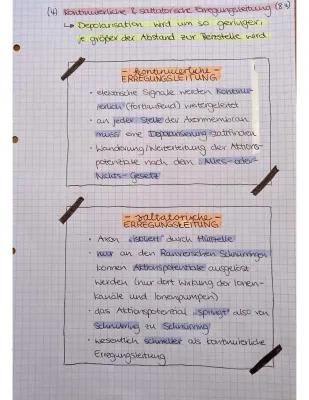 (4) Kontinuierliche & saltatorische Erregungsleitung (8.4)
↳ Depolarisation wird um so geringer,
je größer der Abstand zur Reizstelle wird
- kontinuierliche -
ERREGUNGSLEITUNG
• elektrische Signale werden kontinu-
ierlich (fortlaufend) weitergeleitet
• an jeder Stelle der Axonmembran
muss eine Depolarisierung stattfinden
• Wanderung/Weiterleitung der Aktions-
potentiale nach dem „Alles-oder-
Nichts-Gesetz
- saltatorische -
ERREGUNGSLEITUNG
• Axon „isoliert" durch Hüllzelle
• nur an den Ranvierschen Schnürringen
können Aktionspotentiale ausgelöst
werden (nur dort Wirkung der Ionen-
kanäle und Ionenpumpen)
• das Aktionspotential „springt" also von
Schnürring zu Schnürring
• wesentlich schneller als kontinuierliche
Erregungsleitung